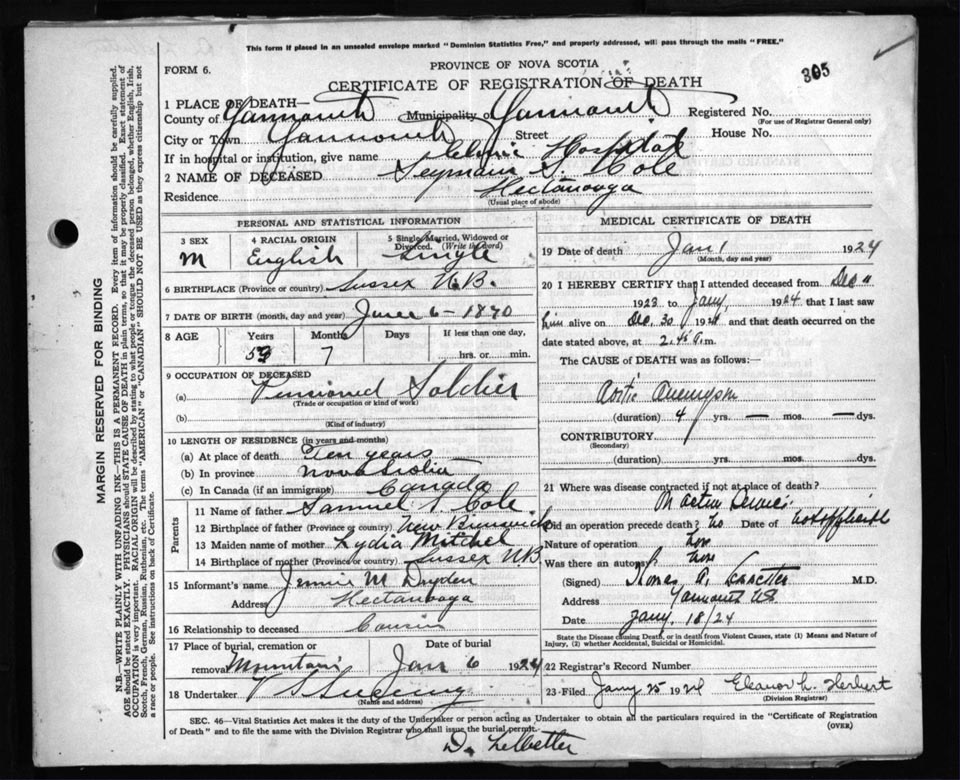 This form if placed in an unsealed envelope marked "Dominion Statistics Free," and properly addressed, will pass through the mails "FREE."
FORM 6.
PROVINCE OF NOVA SCOTIA
CERTIFICATE OF REGISTRATION OF DEATH
305
1 PLACE OF DEATH—
County of Yarmouth Municipality of Yarmouth Registered No.
(For use of Registrar General only)
City or Town Yarmouth Street House No.
If in hospital or institution, give name Hospital
2 NAME OF DECEASED Seymour S. Cole
Residence Hectanooga
(Usual place of abode)
PERSONAL AND STATISTICAL INFORMATION
3 SEX M
4 RACIAL ORIGIN English
5 Single, Married, Widowed or Divorced. (Write the word) Single
6 BIRTHPLACE (Province or country) Sussex N.B.
7 DATE OF BIRTH (month, day and year) June 6 - 1870
8 AGE Years Months Days If less than one day,
53 7 hrs. or min.
9 OCCUPATION OF DECEASED
(a) Pensioned Soldier
(Trade or occupation or kind of work)
(b)
(Kind of industry)
10 LENGTH OF RESIDENCE (in years and months)
(a) At place of death Ten years
(b) In province Nova Scotia
(c) In Canada (if an immigrant) Canada
Parents
11 Name of father Samuel Cole
12 Birthplace of father (Province or country) New Brunswick
13 Maiden name of mother Lydia Mitchel
14 Birthplace of mother (Province or country) Sussex N.B
15 Informant's name Jennie M Dryden
Address Hectanooga
16 Relationship to deceased Cousin
17 Place of burial, cremation or removal Date of burial
Mountain Jan 6 1924
18 Undertaker
(Name and address)
MEDICAL CERTIFICATE OF DEATH
19 Date of death Jan 1 1924
(Month, day and year)
20 I HEREBY CERTIFY that I attended deceased from Dec 11
1923 to Jany, 1924 that I last saw
him alive on Dec. 30 192 and that death occurred on
date stated above, at 2.45 a.m.
The CAUSE of DEATH was as follows:—
Aortic Aneurysm
(duration) 4 yrs. — mos. — dys.
CONTRIBUTORY
(Secondary)
(duration) yrs. mos. dys.
21 Where was disease contracted if not at place of death?
Active Service
Did an operation precede death? No Date of
Nature of operation
Was there an autopsy?
(Signed) Thomas A. M.D.
Address Yarmouth NS
Date Jany. 18/24
State the Disease causing Death, or in death from Violent Causes, state (1) Means and Nature of
Injury, (2) whether Accidental, Suicidal or Homicidal.
22 Registrar's Record Number
23 Filed Jany 25 1924 Eleanor L. Herbert
(Division Registrar)
SEC. 46—Vital Statistics Act makes it the duty of the Undertaker or person acting as Undertaker to obtain all the particulars required in the "Certificate of Registration
of Death" and to file the same with the Division Registrar who shall issue the burial permit.
(OVER)
MARGIN RESERVED FOR BINDING
N.B.—WRITE PLAINLY WITH UNFADING INK—THIS IS A PERMANENT RECORD. Every item of information should be carefully supplied.
AGE should be stated EXACTLY. PHYSICIANS should STATE CAUSE OF DEATH in plain terms, so that it may be properly classified. Exact statement of
OCCUPATION is very important. RACIAL ORIGIN will be described by stating to what people or tongue the deceased person belonged, whether English, Irish,
Scotch, French, German, Russian, Ruthenian, etc. The terms "AMERICAN" or "CANADIAN" SHOULD NOT BE USED as they express citizenship but not
a race or people. See instructions on back of Certificate.